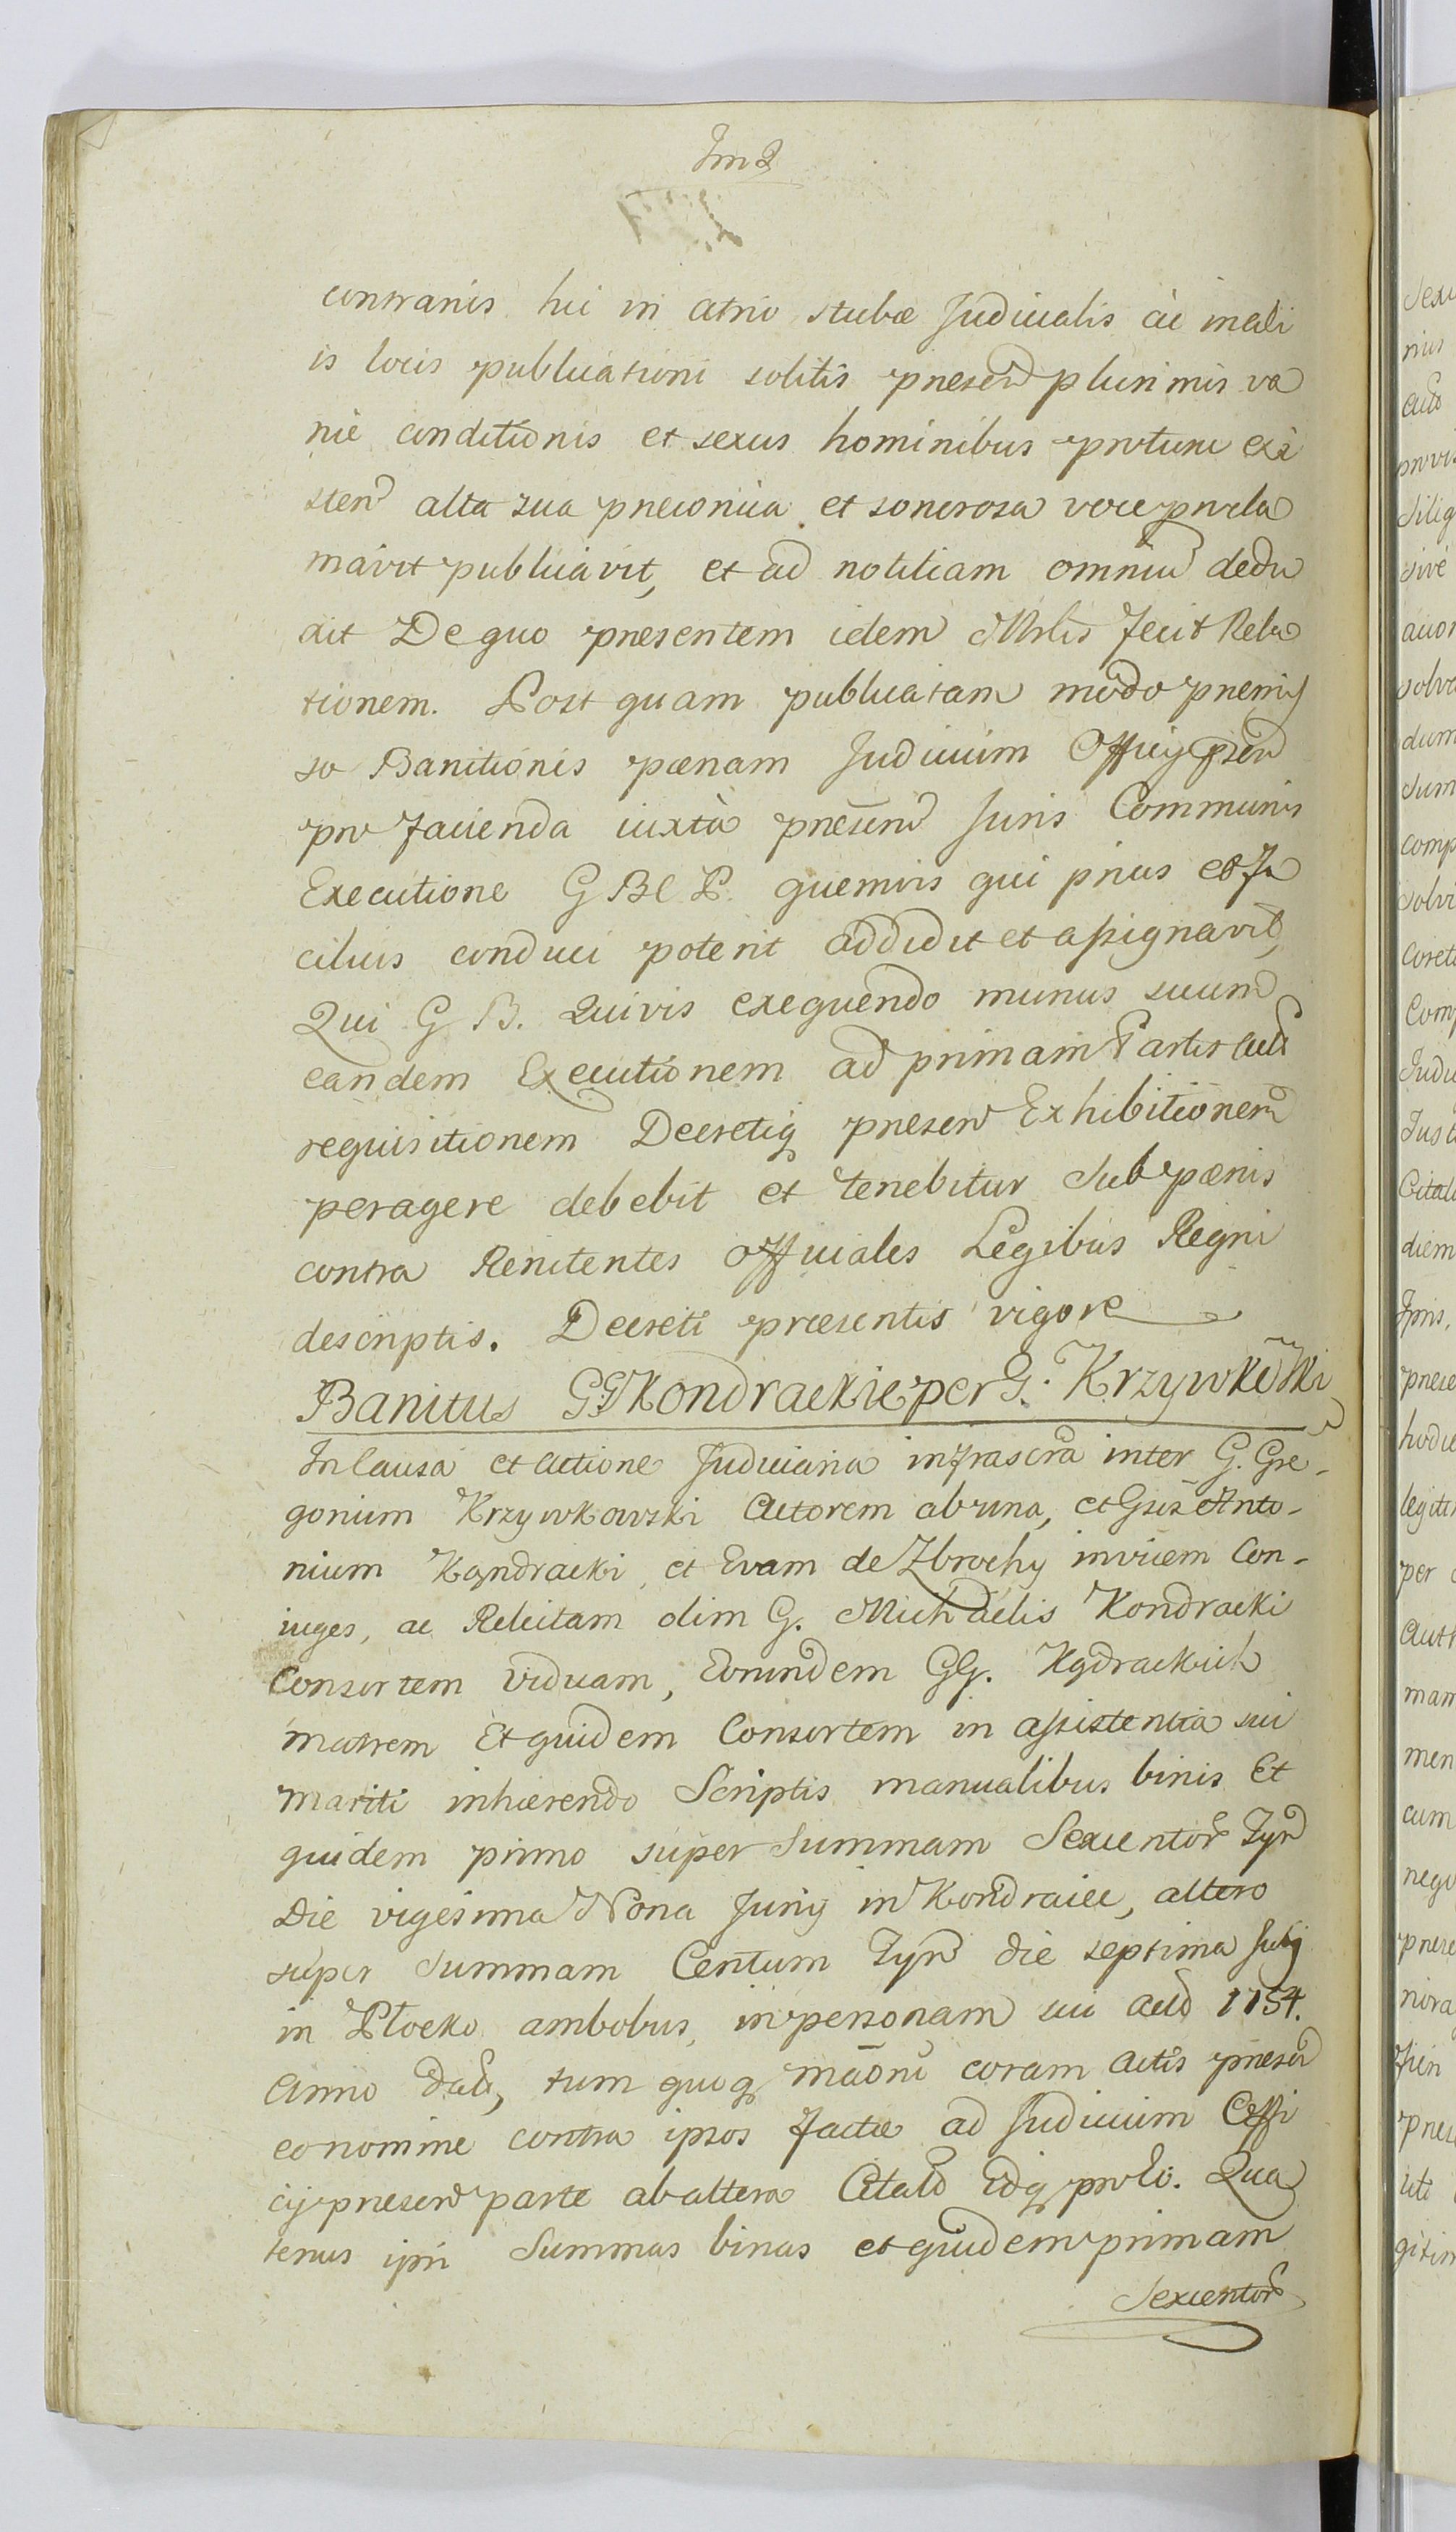 contrariis hic in atrio stubæ Judicialis ac in ali
is locis publicationi solitis presen plurimis va
riè conditionis et sexus hominibus protunc exi
sten alta sua preconica et sonorosa voce procla
mavit publicavit, et ad notitiam omniu dedu
xit De quo presentem idem Mrlis fecit Rela
tionem. Post quam publicatam modo premis
so Banitionis pænam Judicium Officy presen
pro facienda iuxta presens Juris Communis
Executione G B P. quemvis qui prius et fa
cilius conduci poterit addidit et assignavit,
Qui G. B. Quivis exequendo munus suum
eandem Executionem ad primam Partis
requisitionem Decretiq presen Exhibitionem
peragere debebit et tenebitur sub pænis
contra Renitentes officiales Legibus Regni
descriptis. Decreti præsentis vigore
Banitus GG Kondrackie per G. Krzywkowski
In Causa et Actione Judiciaria infrascra inter G. Gre-
gorium Krzywkowski Actorem ab una, et Gsos Anto-
nium Kądracki, et Evam de Zbrochy invicem Con-
iuges, ac Relictam olim G. Michaelis Kondracki
Consortem Viduam, Eorundem GG. Kądrackich
matrem Et quidem Consortem in assistentia sui
mariti inhærendo Scriptis manualibus binis Et
quidem primo super Summam Sexcentor Tyn
Die vigesima Nona Juny in Kondraiec, altero
super Summam Centum Tyn die septima July
in Płocko ambobus, in personam sui Acto 1754.
Anno dat, tum quoq maōni coram Actis presen
eo nomine contra ipsos factæ ad Judicium Offi
cy presen parte ab altera Citato Idq pro. Qua
tenus ipsi Summas binas et quidem primam
Sexcentor